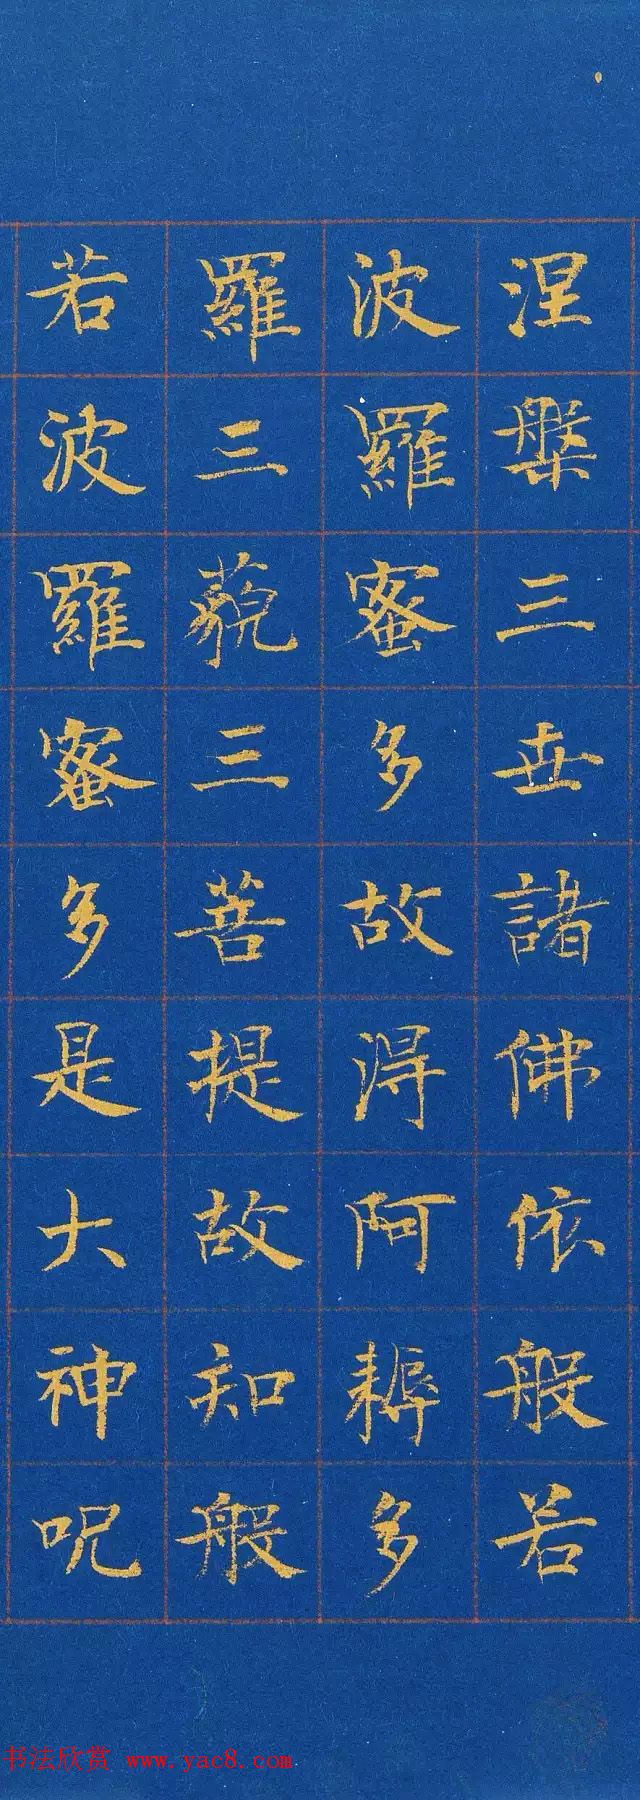 涅槃三世諸佛依般若
波羅蜜多故得阿耨多
羅三藐三菩提故知般
若波羅蜜多是大神呪
书法欣赏 www.yac8.com